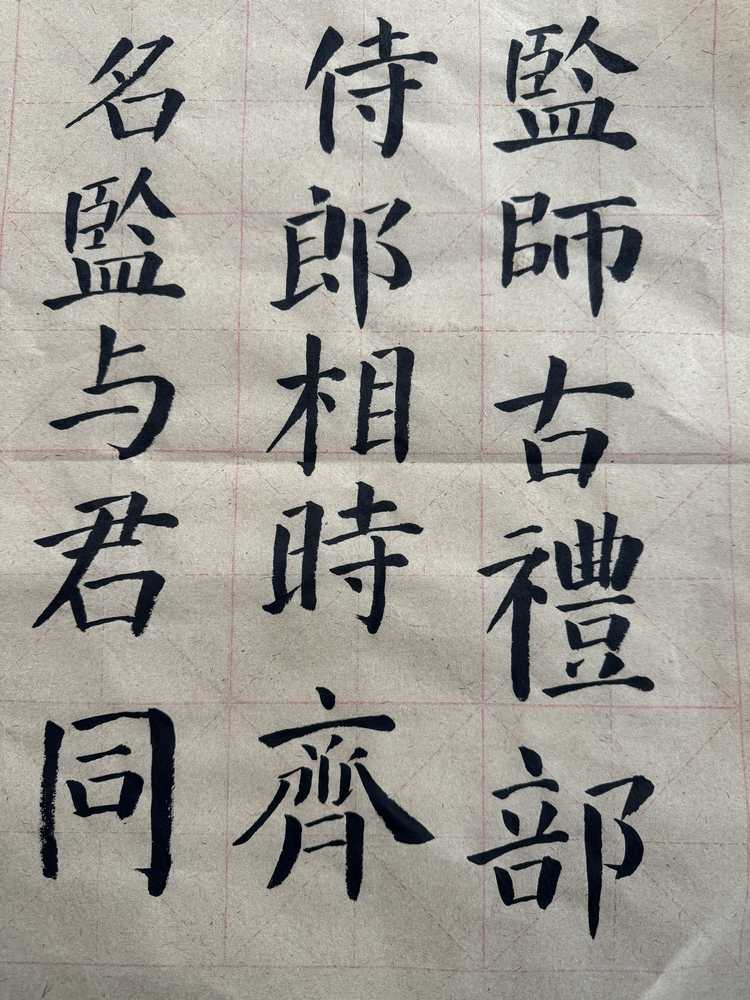 監師古禮部
侍郎相時齊
名監与君同